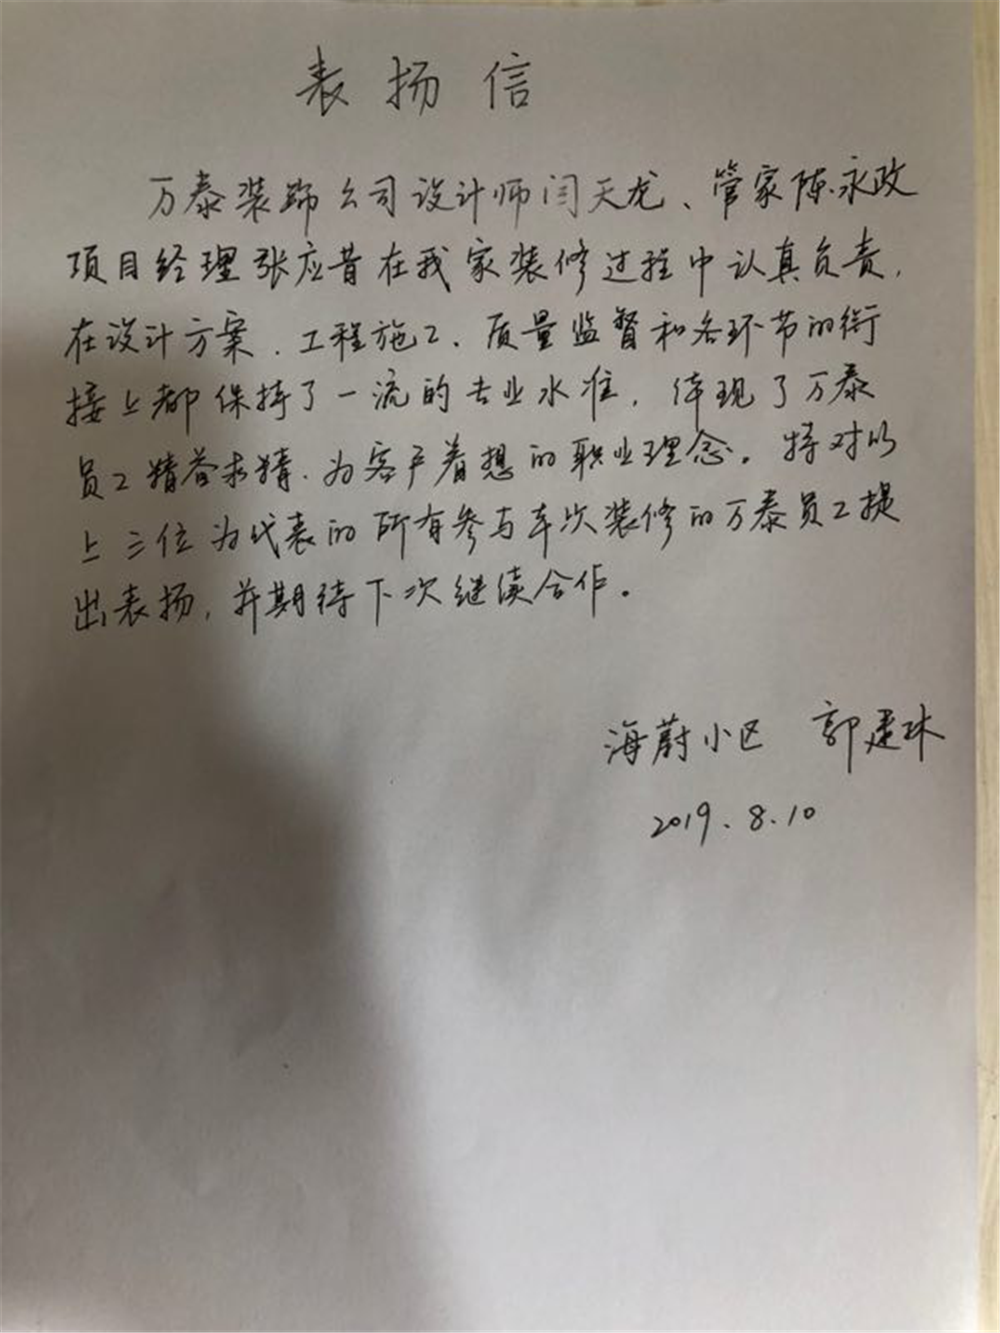 表扬信
万泰装饰公司设计师闫天龙、管家陈永政
项目经理张应昔在我家装修过程中认真负责,
在设计方案、工程施工、质量监督和各环节的衔
接上都保持了一流的专业水准,体现了万泰
员工精益求精、为客户着想的职业理念。特对以
上三位为代表的所有参与本次装修的万泰员工提
出表扬,并期待下次继续合作。
海蔚小区 郭建林
2019.8.10